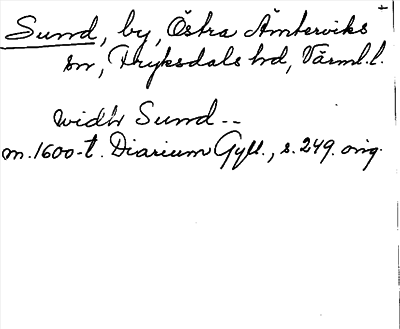 Sund, by, Östra Ämterviks
sn, Fryksdals hd, Värml.l.
widh Sund --
m. 1600-t. Diarium Gyll., s. 249. orig.